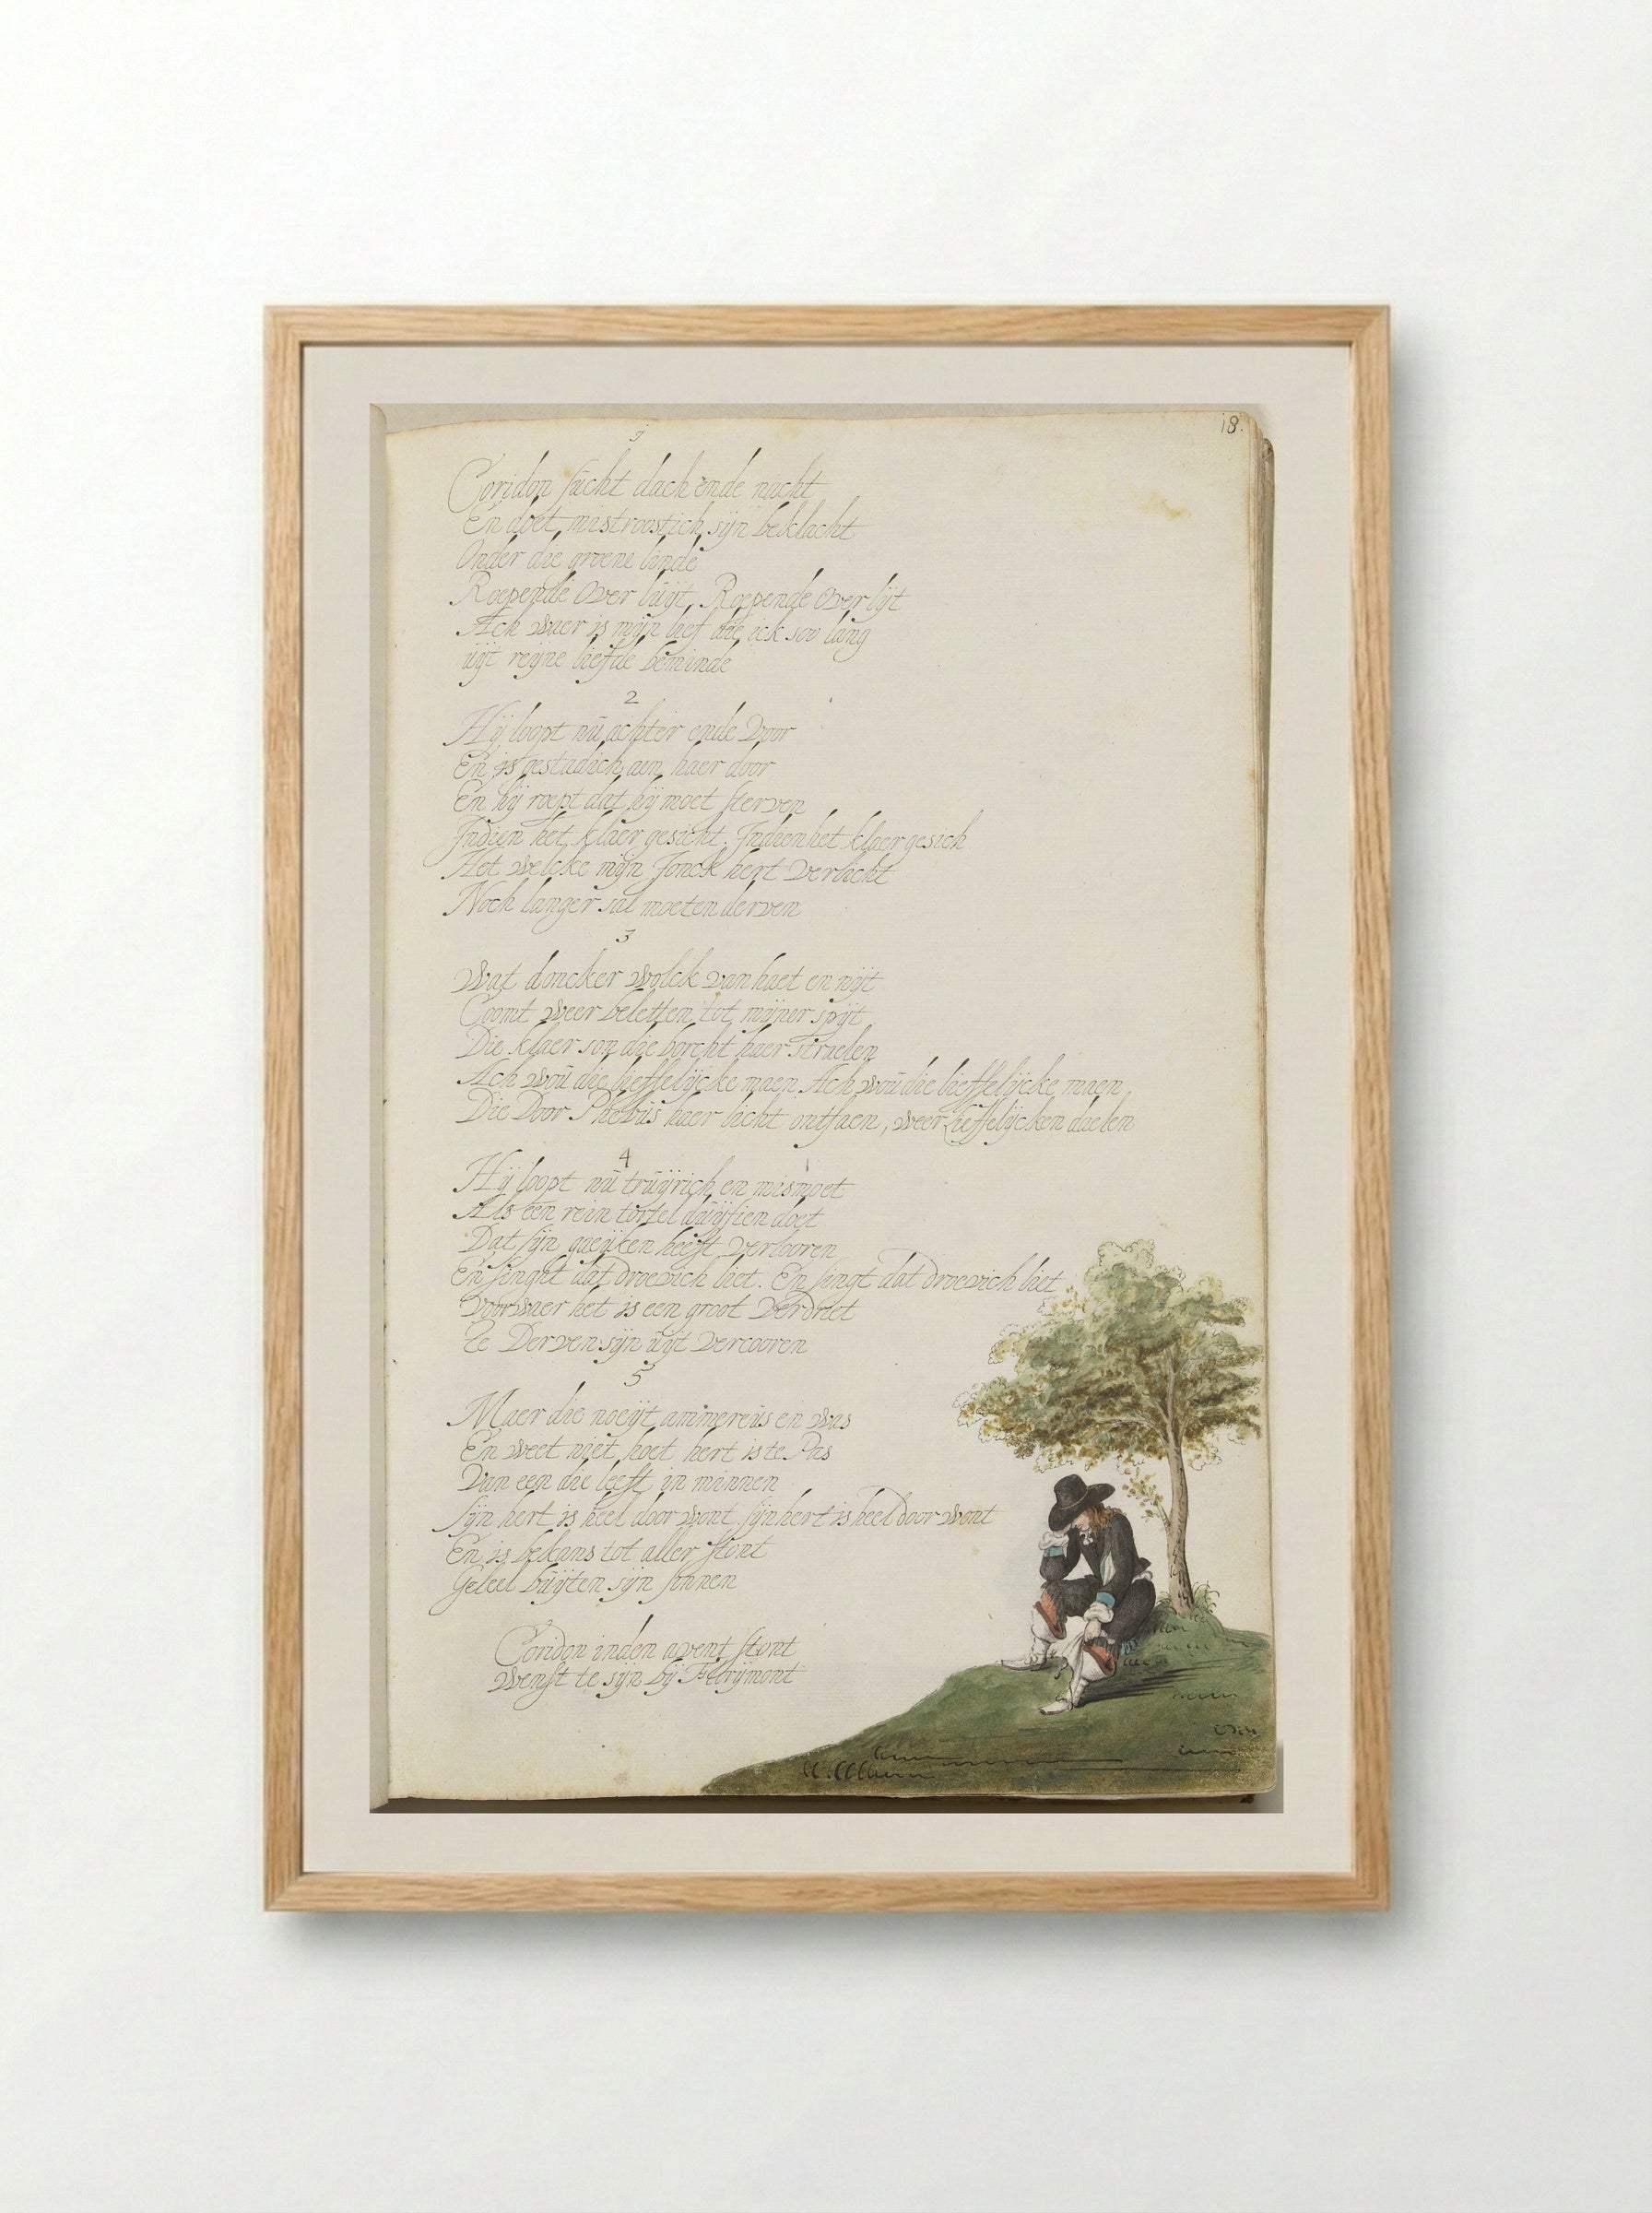 18.
1
Coridon sücht dach ende nacht
En doet mistroostich sÿn beklacht
Onder die groene linde
Roepende over lüÿt, Roepende over lÿt
Ach waer is mÿn lief die ick soo lang
üÿt reÿne liefde beminde
2
Hÿ loopt nü achter ende voor
En is gestadich aen haer door
En hÿ roept dat hÿ moet sterven
Indien het klaer gesicht. Indien het klaer gesich
Het welcke mÿn Jonck hert verlicht
Noch langer sal moeten derven
3
Wat doncker wolck van haet en nÿt
Coomt weer beletten tot mÿner spÿt
Die klaer son die borcht haer straelen
Ach woü die lieffelÿcke maen Ach woü die lieffelÿcke maen
Die Door Phebüs haer licht ontfaen, weer lieffelÿcken daelen
4
Hÿ loopt nü trüÿrich en mismoet
Als een rein tortel düÿfien doet
Dat sÿn gaeÿken heeft verlooren
En singht dat droevich liet. En singt dat droevich liet
Voorwaer het is een groot verdriet
te Derven sÿn üÿt vercooren
5
Maer die noeÿt ammereüs en was
En weet niet hoet hert is te Pas
Van een die leeft in minnen
sÿn hert is heel door wont. sÿn hert is heel door wont
En is bekans tot aller stont
Geleel büÿten sÿn sinnen
Coridon inden avent stont
Wenst te sÿn bÿ